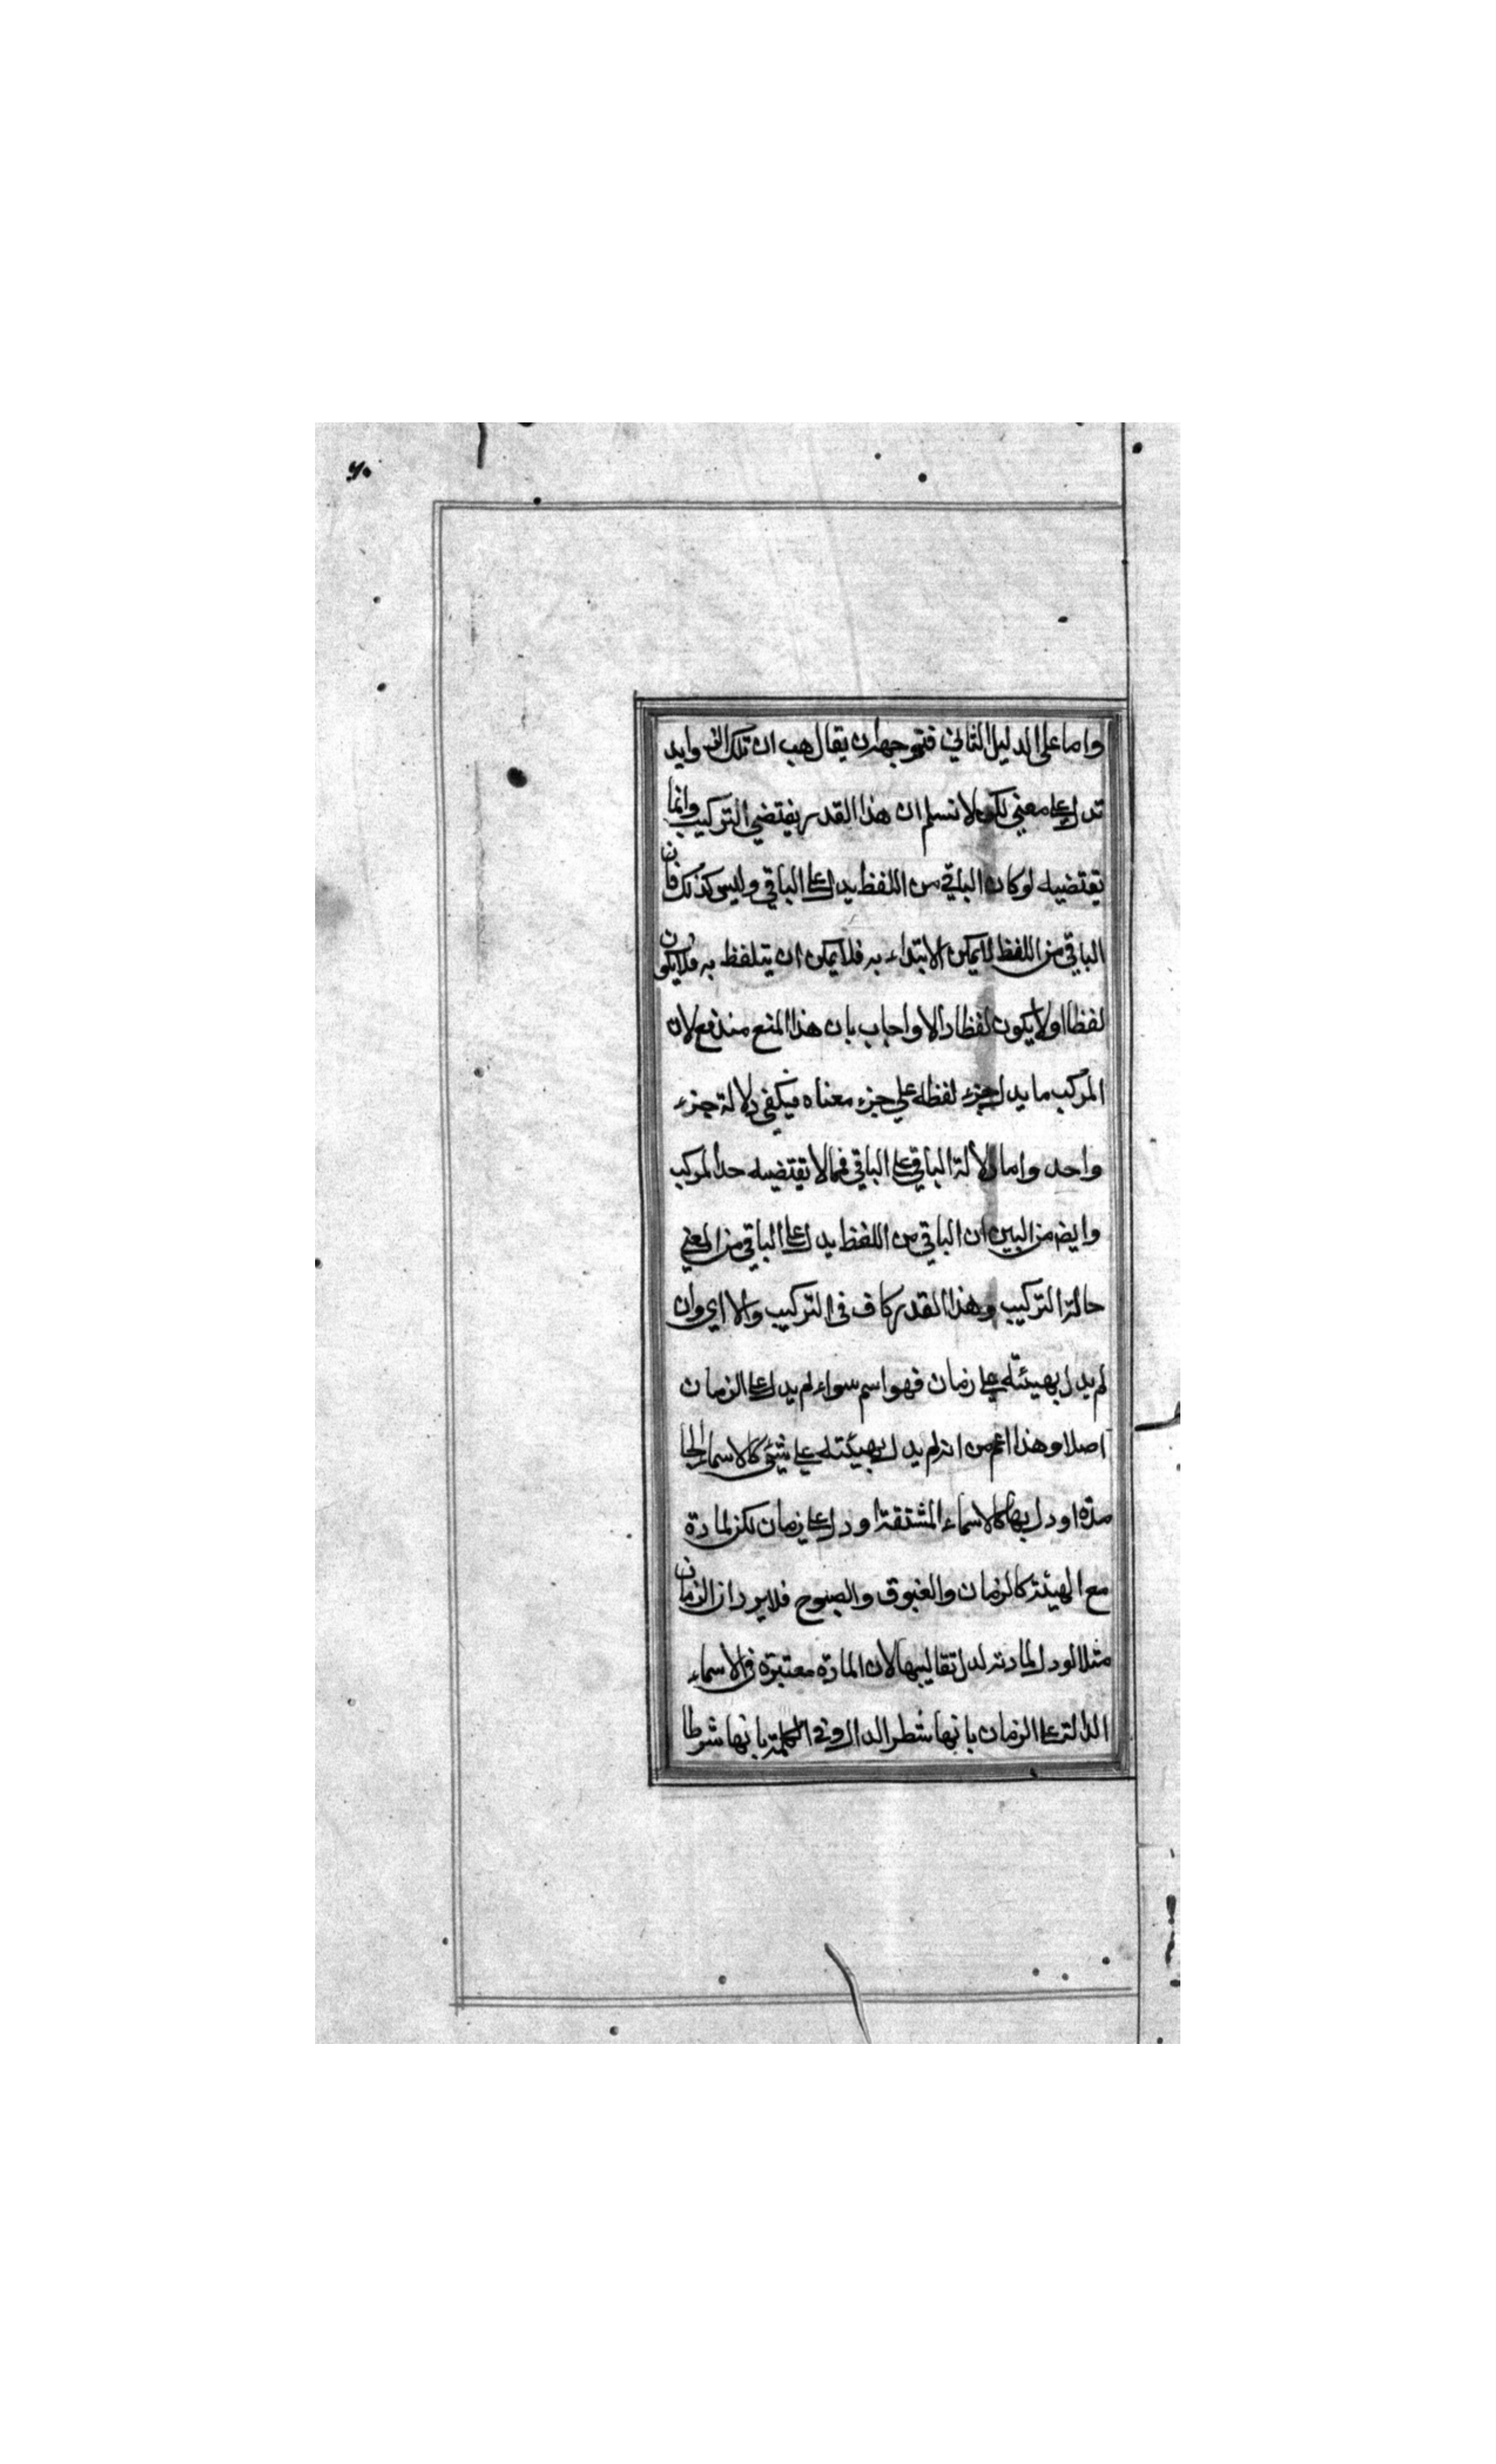 ۶۰
واما على الدليل الثاني فتوجهه ان يقال هب ان تلك الزوايد
تدل على معنى لكن لا نسلم ان هذا القدر يقتضي التركيب وانما
يقتضيه لو كان الباقي من اللفظ يدل على الباقي وليس كذلك فان
الباقي من اللفظ لا يمكن الابتداء به فلا يمكن ان يتلفظ به فلا يكون
لفظا او لا يكون لفظا دالا واجاب بان هذا المنع مندفع لان
المركب ما يدل جزء لفظه على جزء معناه فيكفي دلالة جزء
واحد واما دلالة الباقي على الباقي فمما لا يقتضيه حد المركب
وايضا من البين ان الباقي من اللفظ يدل على الباقي من المعنى
حالة التركيب وهذا القدر كاف في التركيب والا اي وان
لم يدل بهيئته على زمان فهو اسم سواء لم يدل على الزمان
اصلا وهذا اعم من انه لم يدل بهيئته على شيء كالاسماء الجا
مدة او دل بها كالاسماء المشتقة او دل على زمان لكن لمادة
مع الهيئة كالزمان والغبوق والصبوح فلا يرد ان الزمان
مثلا لو دل لمادته لدل تقاليبها لان المادة معتبرة في الاسماء
الدالة على الزمان بانها شطر الدال وفي الكلمة بانها شرطا